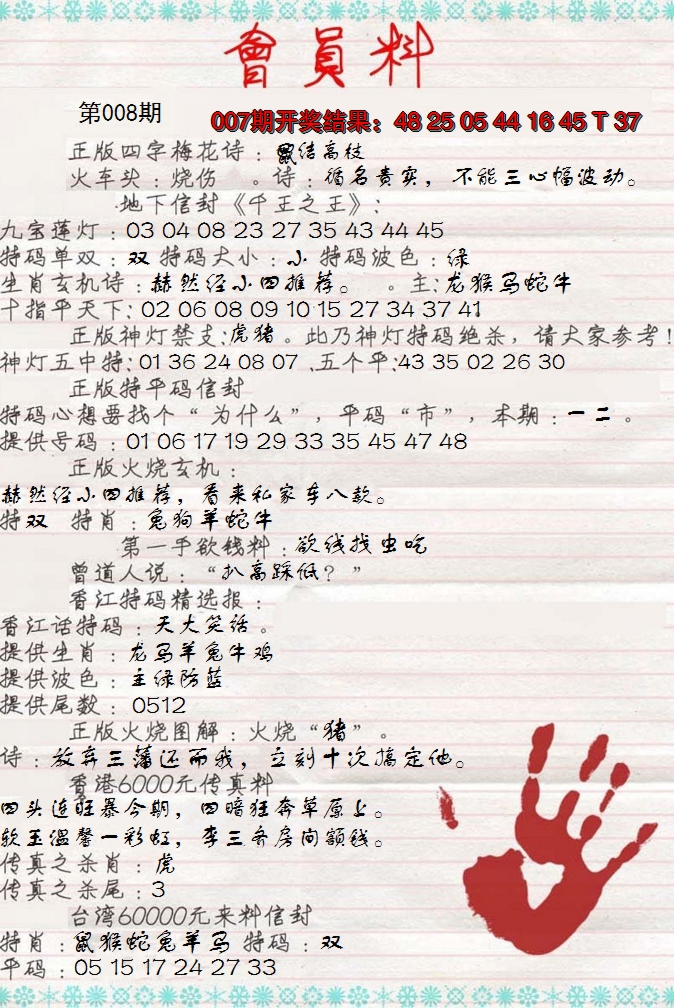 會員料
第008期
007期开奖结果：48 25 05 44 16 45 T 37
正版四字梅花诗：鼠结高枝
火车头：烧伤 。诗：循名责实，不能三心幅波动。
地下信封《千王之王》：
九宝莲灯：03 04 08 23 27 35 43 44 45
特码单双：双 特码大小：小 特码波色：绿
生肖玄机诗：赫然经小四推荐。 。主：龙猴马蛇牛
十指平天下：02 06 08 09 10 15 27 34 37 41
正版神灯禁支：虎猪。此乃神灯特码绝杀，请大家参考！
神灯五中特：01 36 24 08 07 .五个平：43 35 02 26 30
正版特平码信封
特码心想要找个“为什么”，平码“市”，本期：一二。
提供号码：01 06 17 19 29 33 35 45 47 48
正版火烧玄机：
赫然经小四推荐，看来私家车八款。
特双 特肖：兔狗羊蛇牛
第一手欲钱料：欲钱找虫吃
曾道人说：“扒高踩低？”
香江特码精选报：
香江话特码：天大笑话。
提供生肖：龙马羊兔牛鸡
提供波色：主绿防蓝
提供尾数：0512
正版火烧图解：火烧“猪”。
诗：放弃三藩还而我，立刻十次搞定他。
香港6000元传真料
四头连旺暴今期，四暗狂奔草原上。
软玉温馨一彩虹，李三务房间额钱。
传真之杀肖：虎
传真之杀尾：3
台湾60000元来料信封
特肖：鼠猴蛇兔羊马 特码：双
平码：05 15 17 24 27 33